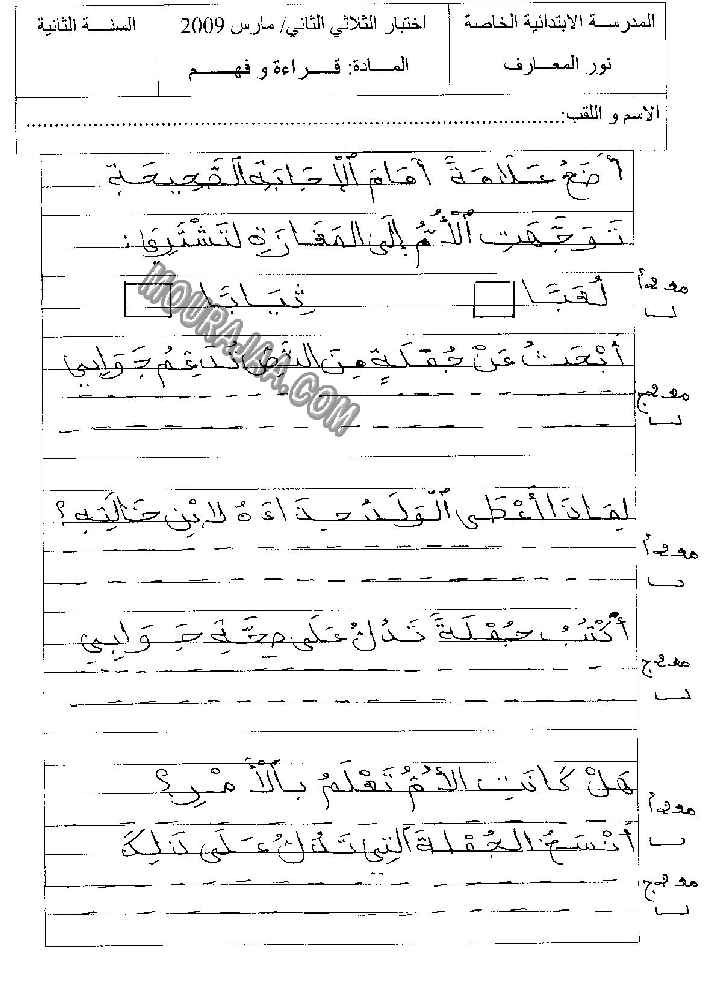 المدرسة الابتدائية الخاصة
نور المعارف
اختبار الثلاثي الثاني/ مارس 2009
المادة: قراءة و فهم
السنة الثانية
الاسم و اللقب:
أَضَعُ عَلَامَةً أَمَامَ الْإِجَابَةِ الصَّحِيحَةِ
تَوَجَّهَتِ الْأُمُّ إِلَى المَغَازَةِ لتَشْتَرِيَ:
لُعَبًا ثِيَابًا
مع2أ
أَبْحَثُ عَنْ جُمْلَةٍ مِنَ النَّصِّ تُدَعِّمُ جَوَابِي
مع2ج
لِمَاذَا أَعْطَى الْوَلَدُ حِذَاءَهُ لابْنِ خَالَتِهِ؟
مع2أ
أَكْتُبُ جُمْلَةً تَدُلُّ عَلَى صِحَّةِ جَوَابِي
مع2ج
هَلْ كَانَتِ الأُمُّ تَعْلَمُ بِالْأَمْرِ؟
مع2أ
أَنْسَخُ الجُمْلَةَ الَّتِي تَدُلُّ عَلَى ذَلِكَ
مع2ج
MOURAJAA.COM